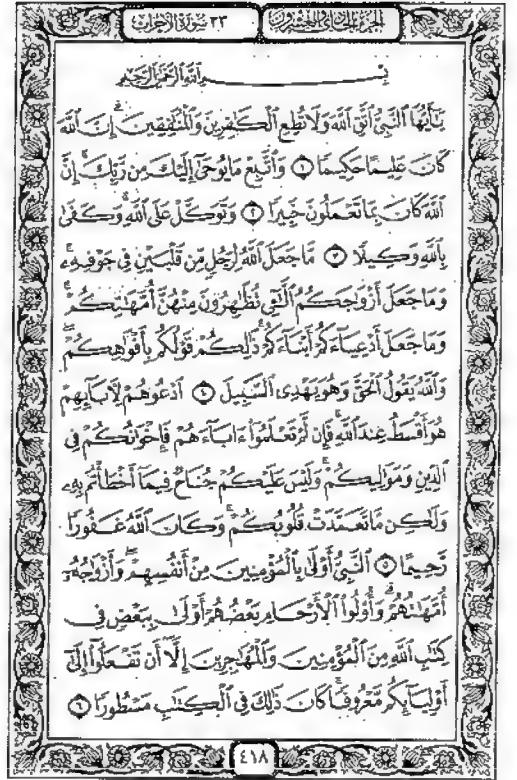 الجزء الحادي والعشرون
٣٣ سورة الأحزاب
بِسْمِ اللَّهِ الرَّحْمَٰنِ الرَّحِيمِ
يَٰٓأَيُّهَا ٱلنَّبِىُّ ٱتَّقِ ٱللَّهَ وَلَا تُطِعِ ٱلْكَٰفِرِينَ وَٱلْمُنَٰفِقِينَ ۗ إِنَّ ٱللَّهَ
كَانَ عَلِيمًا حَكِيمًا ١ وَٱتَّبِعْ مَا يُوحَىٰٓ إِلَيْكَ مِن رَّبِّكَ ۚ إِنَّ
ٱللَّهَ كَانَ بِمَا تَعْمَلُونَ خَبِيرًا ٢ وَتَوَكَّلْ عَلَى ٱللَّهِ ۚ وَكَفَىٰ
بِٱللَّهِ وَكِيلًا ٣ مَّا جَعَلَ ٱللَّهُ لِرَجُلٍ مِّن قَلْبَيْنِ فِى جَوْفِهِۦ ۚ
وَمَا جَعَلَ أَزْوَٰجَكُمُ ٱلَّٰٓـِٔى تُظَٰهِرُونَ مِنْهُنَّ أُمَّهَٰتِكُمْ ۚ
وَمَا جَعَلَ أَدْعِيَآءَكُمْ أَبْنَآءَكُمْ ۚ ذَٰلِكُمْ قَوْلُكُم بِأَفْوَٰهِكُمْ ۖ
وَٱللَّهُ يَقُولُ ٱلْحَقَّ وَهُوَ يَهْدِى ٱلسَّبِيلَ ٤ ٱدْعُوهُمْ لِءَابَآئِهِمْ
هُوَ أَقْسَطُ عِندَ ٱللَّهِ ۚ فَإِن لَّمْ تَعْلَمُوٓا۟ ءَابَآءَهُمْ فَإِخْوَٰنُكُمْ فِى
ٱلدِّينِ وَمَوَٰلِيكُمْ ۚ وَلَيْسَ عَلَيْكُمْ جُنَاحٌ فِيمَآ أَخْطَأْتُم بِهِۦ
وَلَٰكِن مَّا تَعَمَّدَتْ قُلُوبُكُمْ ۚ وَكَانَ ٱللَّهُ غَفُورًا
رَّحِيمًا ٥ ٱلنَّبِىُّ أَوْلَىٰ بِٱلْمُؤْمِنِينَ مِنْ أَنفُسِهِمْ ۖ وَأَزْوَٰجُهُۥٓ
أُمَّهَٰتُهُمْ ۗ وَأُو۟لُوا۟ ٱلْأَرْحَامِ بَعْضُهُمْ أَوْلَىٰ بِبَعْضٍ فِى
كِتَٰبِ ٱللَّهِ مِنَ ٱلْمُؤْمِنِينَ وَٱلْمُهَٰجِرِينَ إِلَّآ أَن تَفْعَلُوٓا۟ إِلَىٰٓ
أَوْلِيَآئِكُم مَّعْرُوفًا ۚ كَانَ ذَٰلِكَ فِى ٱلْكِتَٰبِ مَسْطُورًا ٦
٤١٨